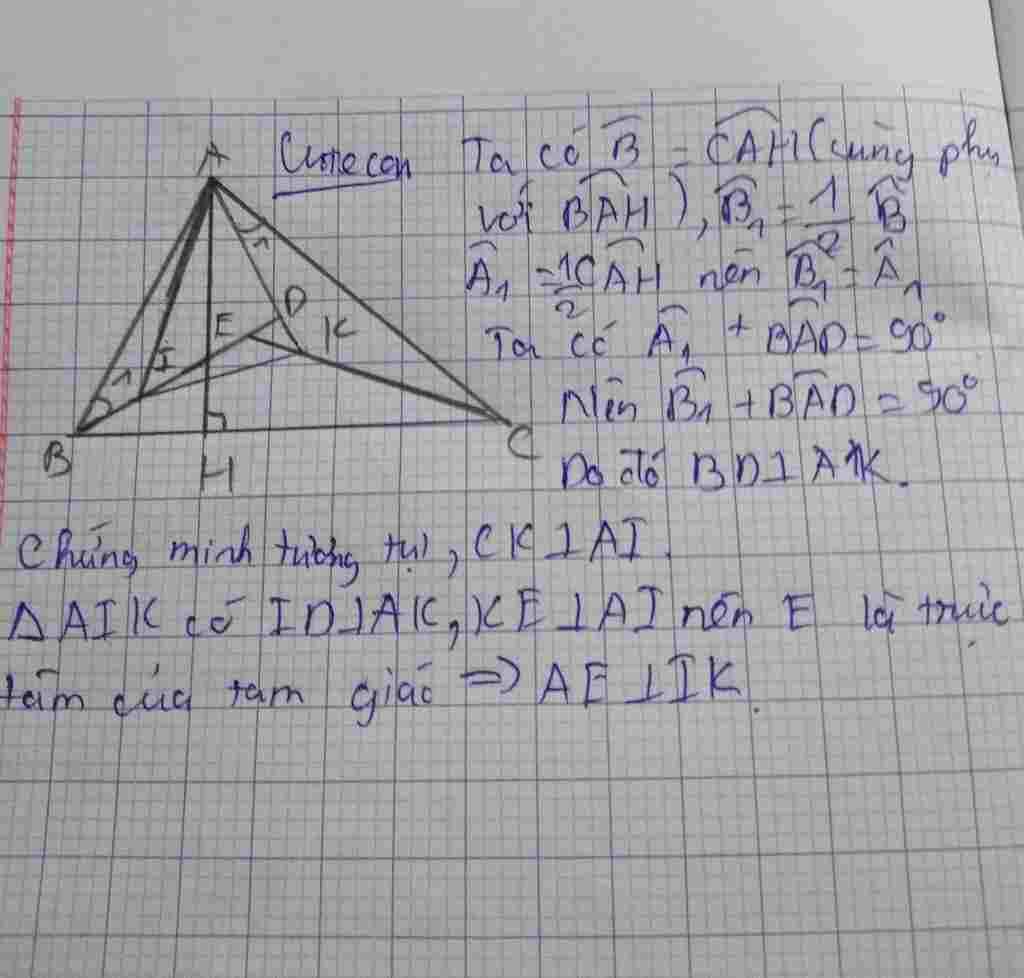 A
Cutecon
Ta có B̂ = CAH (cùng phụ
với BAH), B̂₁ = 1/2 B̂
Â₁ = 1/2 CAH nên B̂₁ = Â₁
Ta có Â₁ + BAD = 90°
Nên B̂₁ + BAD = 90°
Do đó BD⊥AK.
1
D
E
K
I
1
B
H
C
Chứng minh tương tự, CK⊥AI.
Δ AIK có ID⊥AK, KE⊥AI nên E là trực
tâm của tam giác => AE⊥IK.